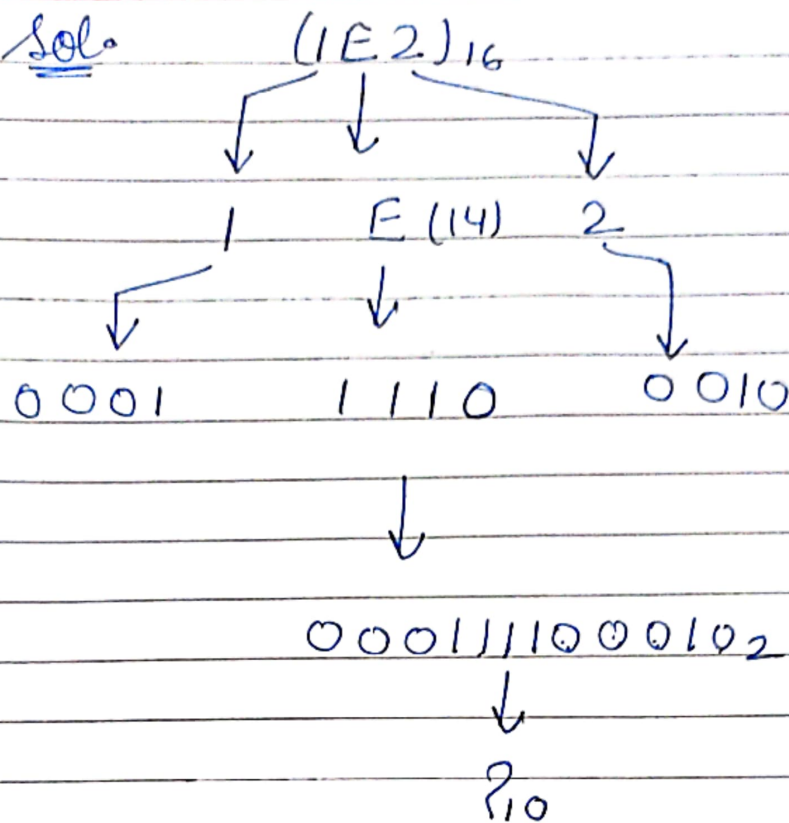 Sol.
(1E2)16
1 E (14) 2
0001 1110 0010
0001111000102
?10